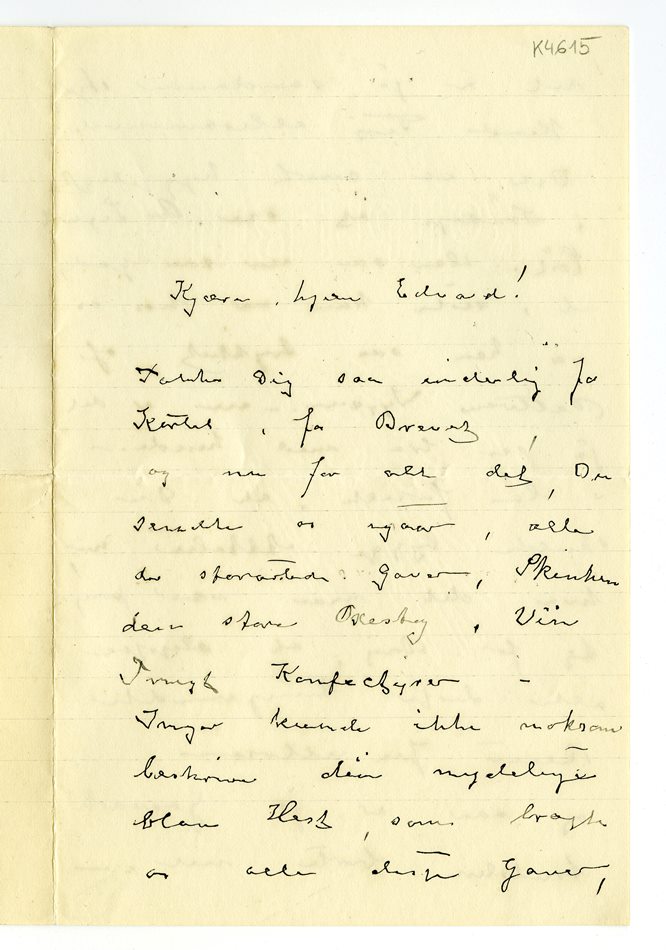 K4615
Kjære, kjære Edvard!
Takker Dig saa inderlig for
Kortet, for Brevet
og nu for alt det, Du
sendte os igaar, alle
de storartede Gaver, Skinken
den store Oxesteg, Vin
Frugt Konfectyser –
Inger kunde ikke noksom
beskrive den nydelige
blaa Hest, som bragte
os alle disse Gaver,